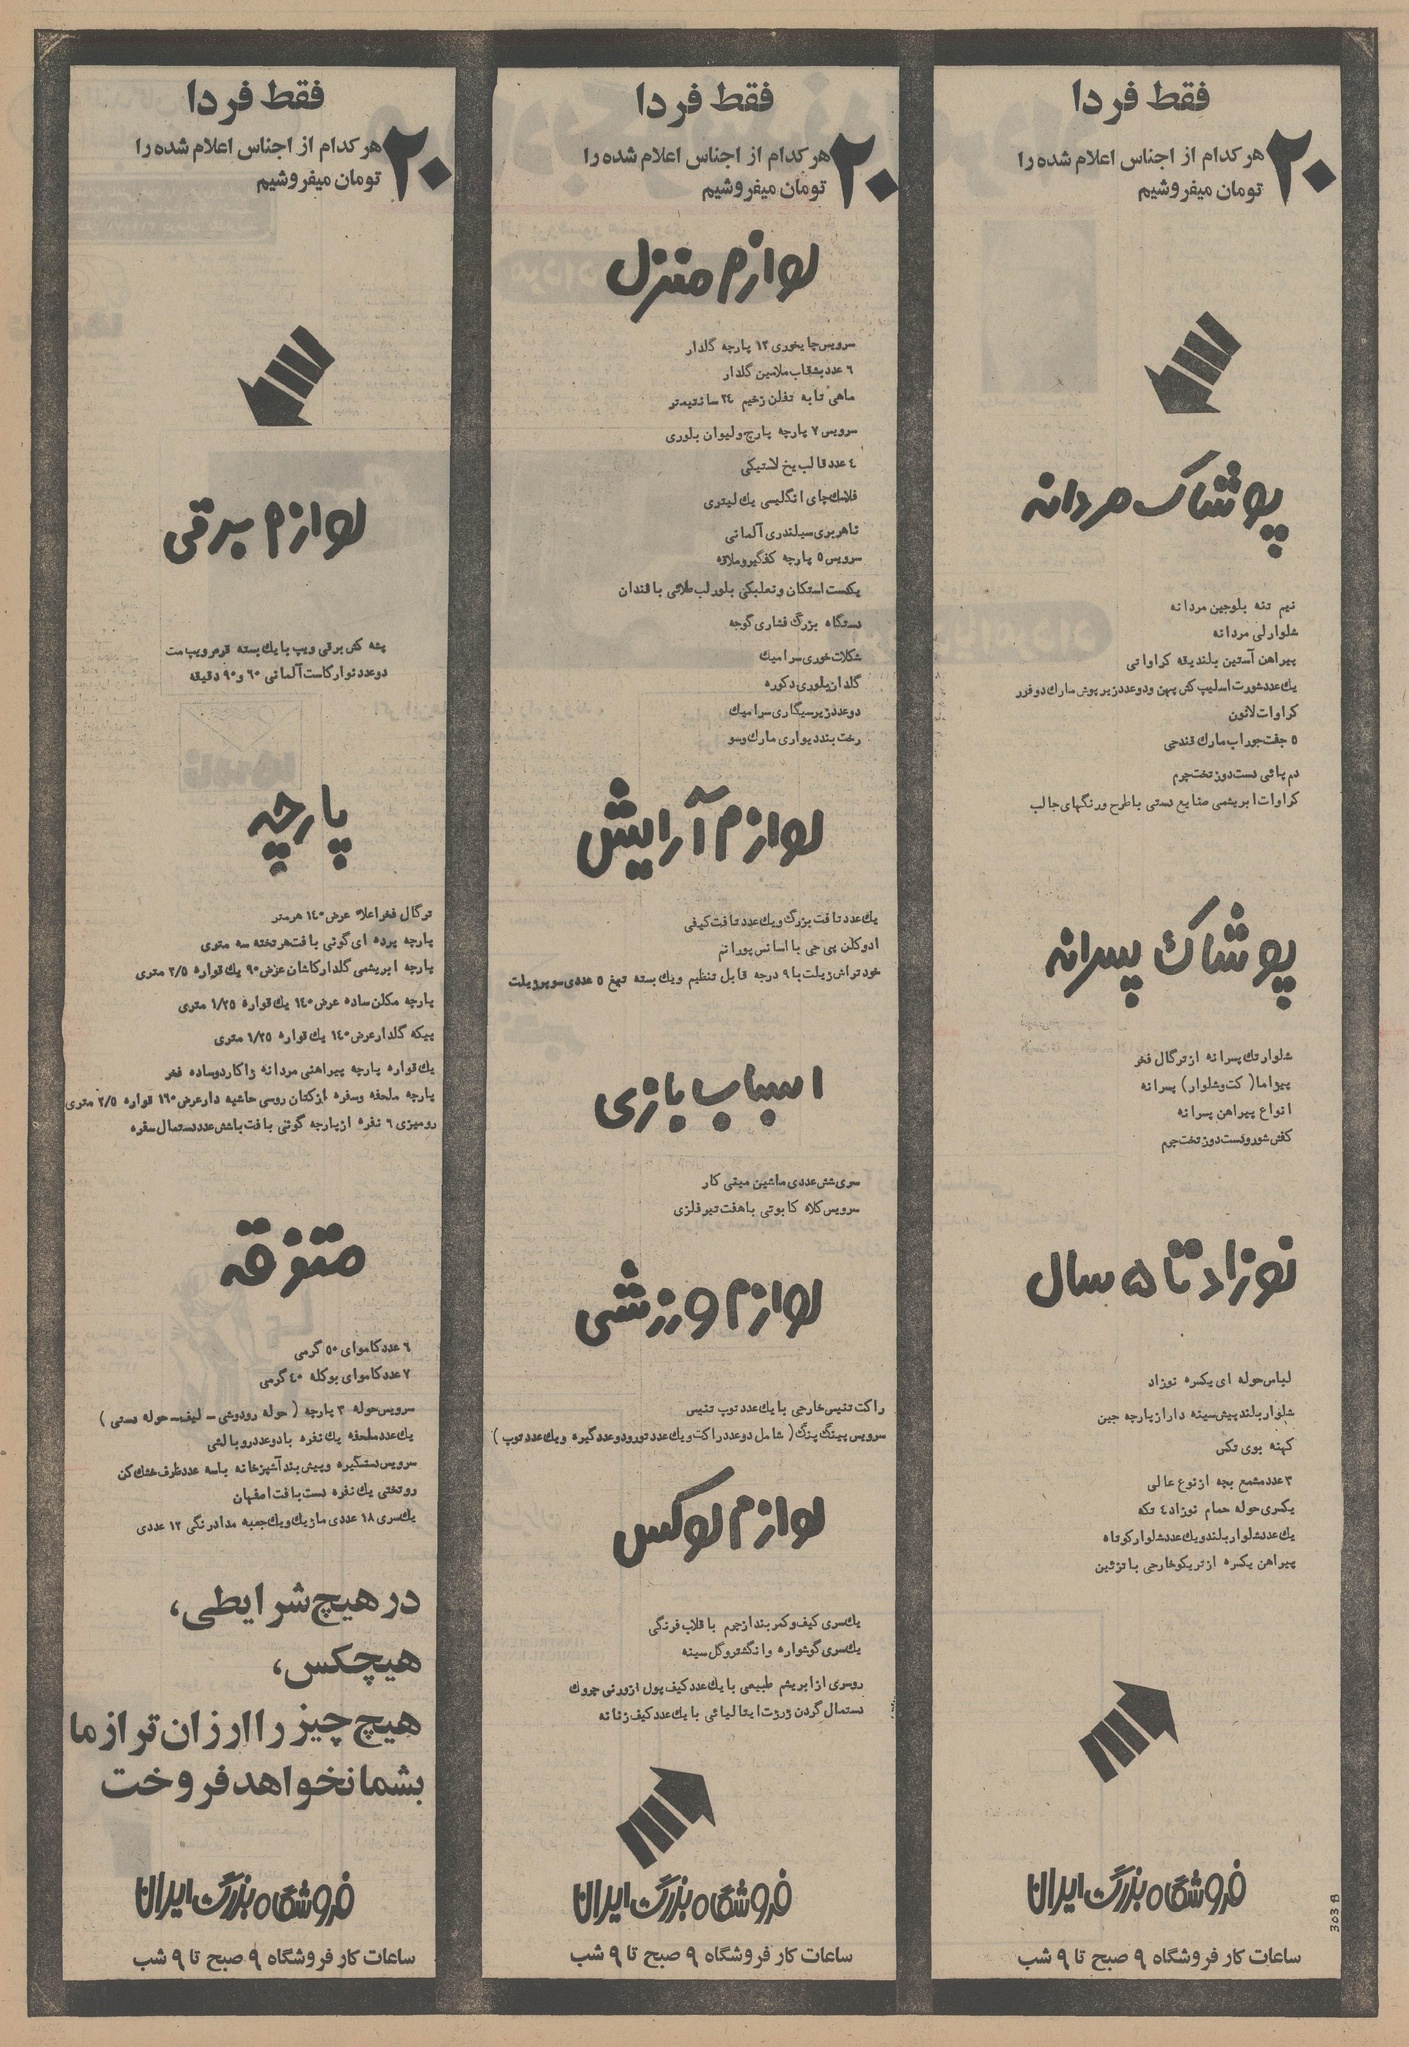 فقط فردا
هر کدام از اجناس اعلام شده را
۲۰
تومان میفروشیم
پوشاک مردانه
نیم تنه بلوجین مردانه
شلوار لی مردانه
پیراهن آستین بلند یقه کراواتی
یك عدد شورت اسلیپ کش پهن و دو عدد زیرپوش مارك دوفور
کراوات لانون
۵ جفت جوراب مارك قندچی
دم پائی دست دوز تخت چرم
کراوات ابریشمی صنایع دستی با طرح و رنگهای جالب
پوشاک پسرانه
شلوار تك پسرانه از ترگال فخر
پیژاما ( کت و شلوار ) پسرانه
انواع پیراهن پسرانه
کفش شورو دست دوز تخت چرم
نوزاد تا ۵ سال
لباس حوله ای یکسره نوزاد
شلوار بلند پیش سینه دار از پارچه جین
کهنه بوی تکس
۳ عدد مشمع بچه از نوع عالی
یکسری حوله حمام نوزاد ٤ تکه
یك عدد شلوار بلند و یك عدد شلوار کوتاه
پیراهن یکسره از تریکو خارجی با تزئین
فروشگاه بزرگ ایران
303 B
ساعات کار فروشگاه ۹ صبح تا ۹ شب
فقط فردا
هر کدام از اجناس اعلام شده را
۲۰
تومان میفروشیم
لوازم منزل
سرویس چایخوری ۱۲ پارچه گلدار
٦ عدد بشقاب ملامین گلدار
ماهی تابه تفلن زخیم ۲٤ سانتیمتر
سرویس ۷ پارچه پارچ و لیوان بلوری
٤ عدد قالب یخ لاستیکی
فلاسك چای انگلیسی یك لیتری
سیلندری آلمانی
سرویس ۵ پارچه کفگیر و ملاقه
یکدست استکان و نعلبکی بلور لب طلائی با قندان
دستگاه بزرگ فشاری گوجه
شکلات خوری سرامیك
گلدان بلوری دکوره
دو عدد زیرسیگاری سرامیك
رخت بند دیواری مارك وسو
لوازم آرایش
یك عدد تافت بزرگ و یك عدد تافت کیفی
ادوکلن پی جی با اسانس پورانم
خود تراش ژیلت با ۹ درجه قابل تنظیم و یك بسته تیغ ۵ عددی سوپر ژیلت
اسباب بازی
سری شش عددی ماشین مینی کار
سرویس کلاه کابوئی با هفت تیر فلزی
لوازم ورزشی
راکت تنیس خارجی با یك عدد توپ تنیس
سرویس پینگ پنگ ( شامل دو عدد راکت و یك عدد تور و دو عدد گیره و یك عدد توپ )
لوازم لوکس
یك سری کیف و کمربند از چرم با قلاب فرنگی
یك سری گوشواره و انگشتر و گل سینه
روسری از ابریشم طبیعی با یك عدد کیف پول از ورنی چروك
دستمال گردن ژرژت ایتالیائی با یك عدد کیف زنانه
فروشگاه بزرگ ایران
ساعات کار فروشگاه ۹ صبح تا ۹ شب
فقط فردا
هر کدام از اجناس اعلام شده را
۲۰
تومان میفروشیم
لوازم برقی
پشه کش برقی ویپ با یك بسته قرص ویپ مت
دو عدد نوار کاست آلمانی ٦۰ و ۹۰ دقیقه
پارچه
ترگال فخر اعلا عرض ۱٤۰ هر متر
پارچه پرده ای گونی بافت هر تخته سه متری
پارچه ابریشمی گلدار کاشان عرض ۹۰ یك قواره ۲/۵ متری
پارچه مکلن ساده عرض ۱٤۰ یك قواره ۱/۲۵ متری
پیکه گلدار عرض ۱٤۰ یك قواره ۱/۲۵ متری
یك قواره پارچه پیراهنی مردانه ژاکارد و ساده فخر
پارچه ملحفه و سفره از کتان روسی حاشیه دار عرض ۱٦۰ قواره ۲/۵ متری
رومیزی ٦ نفره از پارچه گونی بافت با شش عدد دستمال سفره
متفرقه
٦ عدد کاموای ۵۰ گرمی
۷ عدد کاموای بوکله ٤۰ گرمی
سرویس حوله ۳ پارچه ( حوله رودوشی - لیف - حوله دستی )
یك عدد ملحفه یك نفره با دو عدد روبالشی
سرویس دستگیره و پیش بند آشپزخانه با سه عدد ظرف خشك کن
روتختی یك نفره دست بافت اصفهان
یك سری ۱۸ عددی ماژیك و یك جعبه مداد رنگی ۱۲ عددی
در هیچ شرایطی،
هیچکس،
هیچ چیز را ارزان تر از ما
بشما نخواهد فروخت
فروشگاه بزرگ ایران
ساعات کار فروشگاه ۹ صبح تا ۹ شب